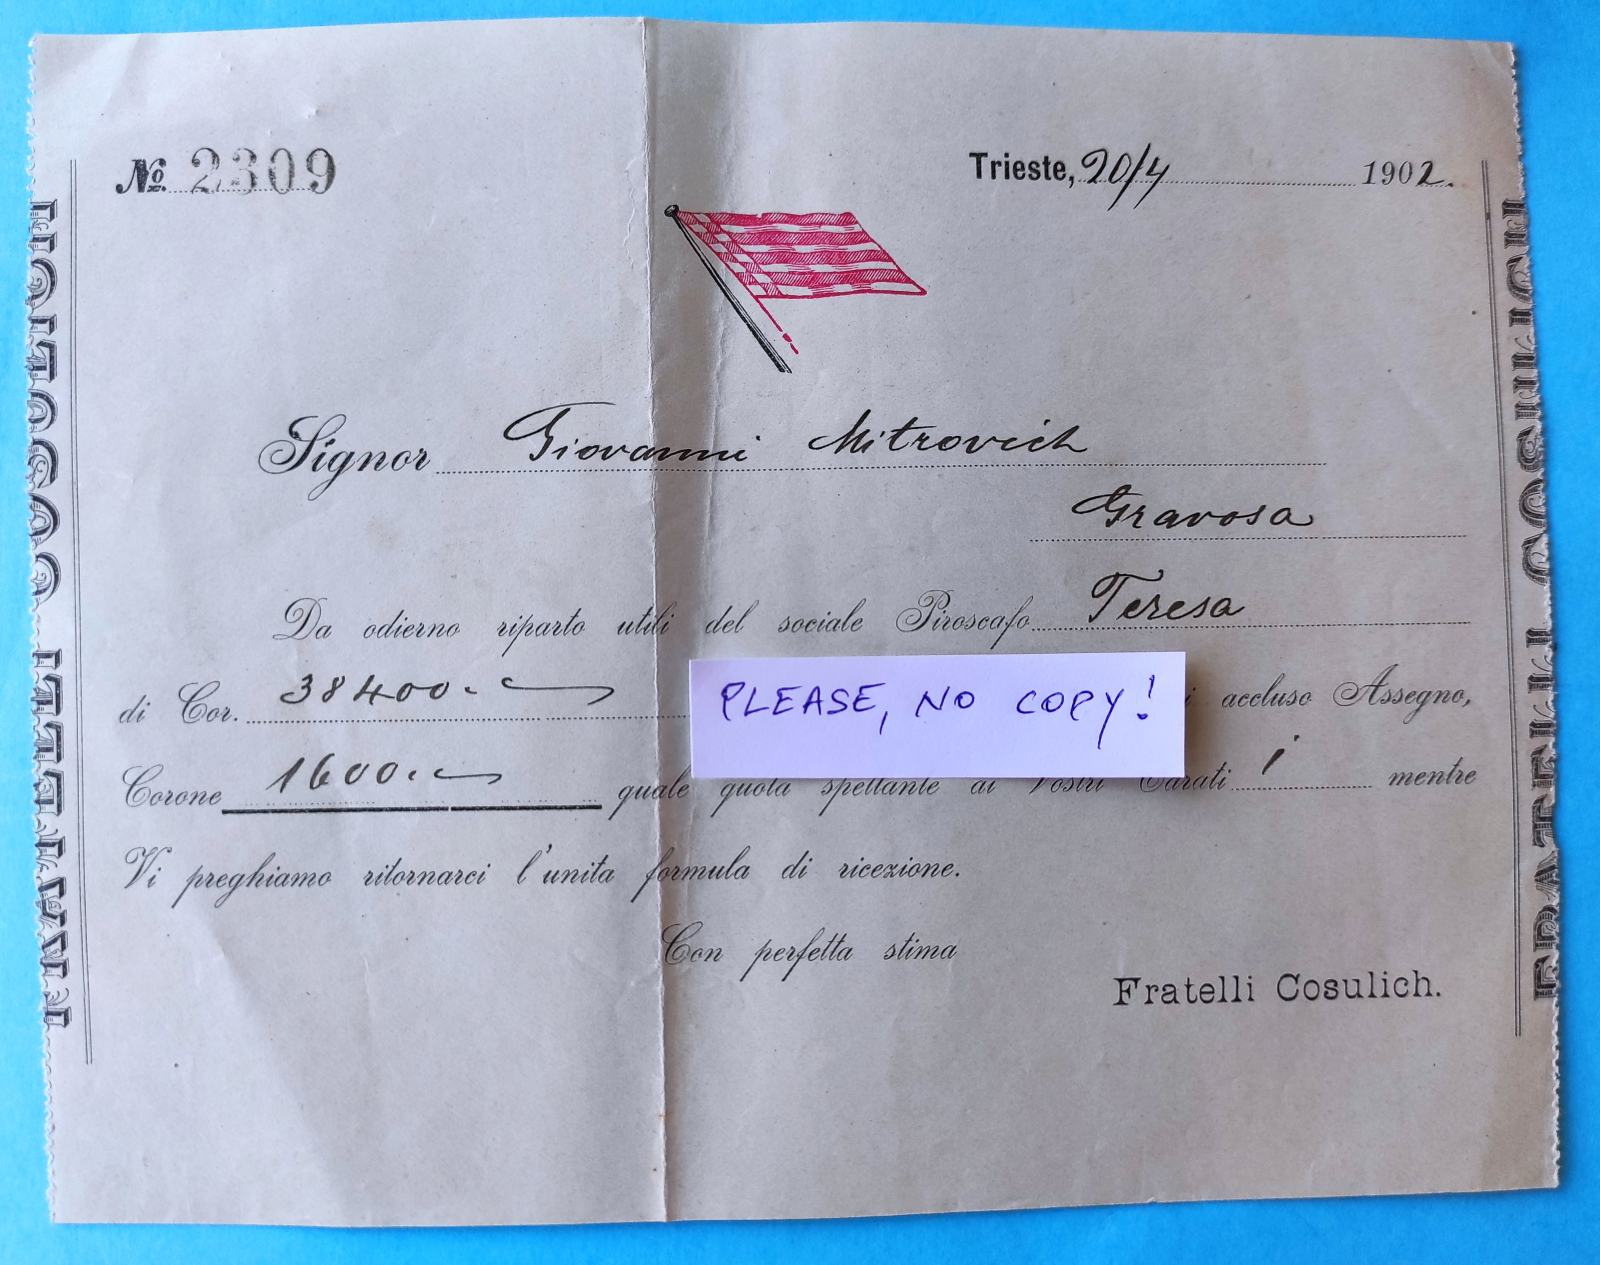 No. 2309
Trieste, 20/4 1902.
Signor Giovanni Mitrovich
Gravosa
Da odierno riparto utili del sociale Piroscafo Teresa
di Cor. 38400.- accluso Assegno,
PLEASE, NO COPY!
Corone 1600.- quale quota spettante ai Vostri Carati 1 mentre
Vi preghiamo ritornarci l'unita formula di ricezione.
Con perfetta stima
Fratelli Cosulich.
FRATELLI COSULICH
FRATELLI COSULICH